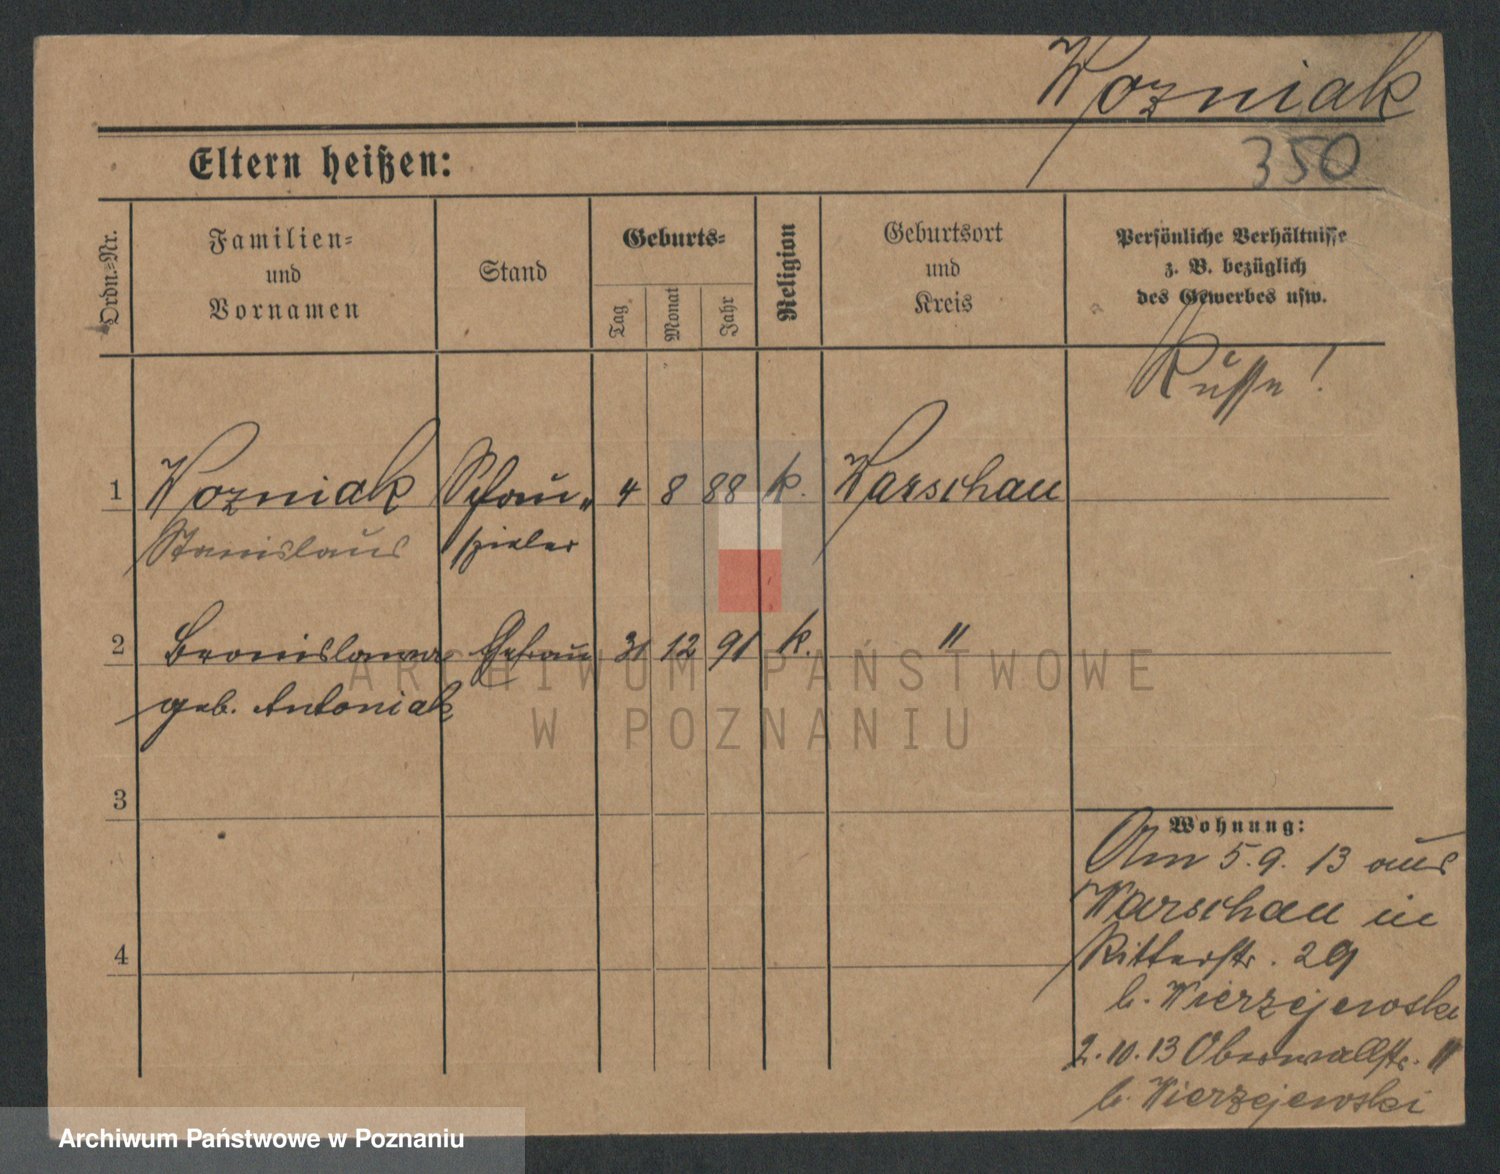 Wozniak
350
Eltern heißen:
Ordn.=Nr.
Familien=
und
Vornamen
Stand
Geburts=
Tag
Monat
Jahr
Religion
Geburtsort
und
Kreis
Persönliche Verhältnisse
z. B. bezüglich
des Gewerbes usw.
Russe!
1 Wozniak Schau„ 4 8 88 k. Warschau
Stanislaus spieler
2 Bronislawa Ehefrau 31 12 91 k. "
geb. Antoniak
3
4
Wohnung:
Am 5.9.13 aus
Warschau in
Ritterstr. 29
b. Wierzejewski
2.10.13 Oberwallstr. 11
b. Wierzejewski
ARCHIWUM PAŃSTWOWE
W POZNANIU
Archiwum Państwowe w Poznaniu